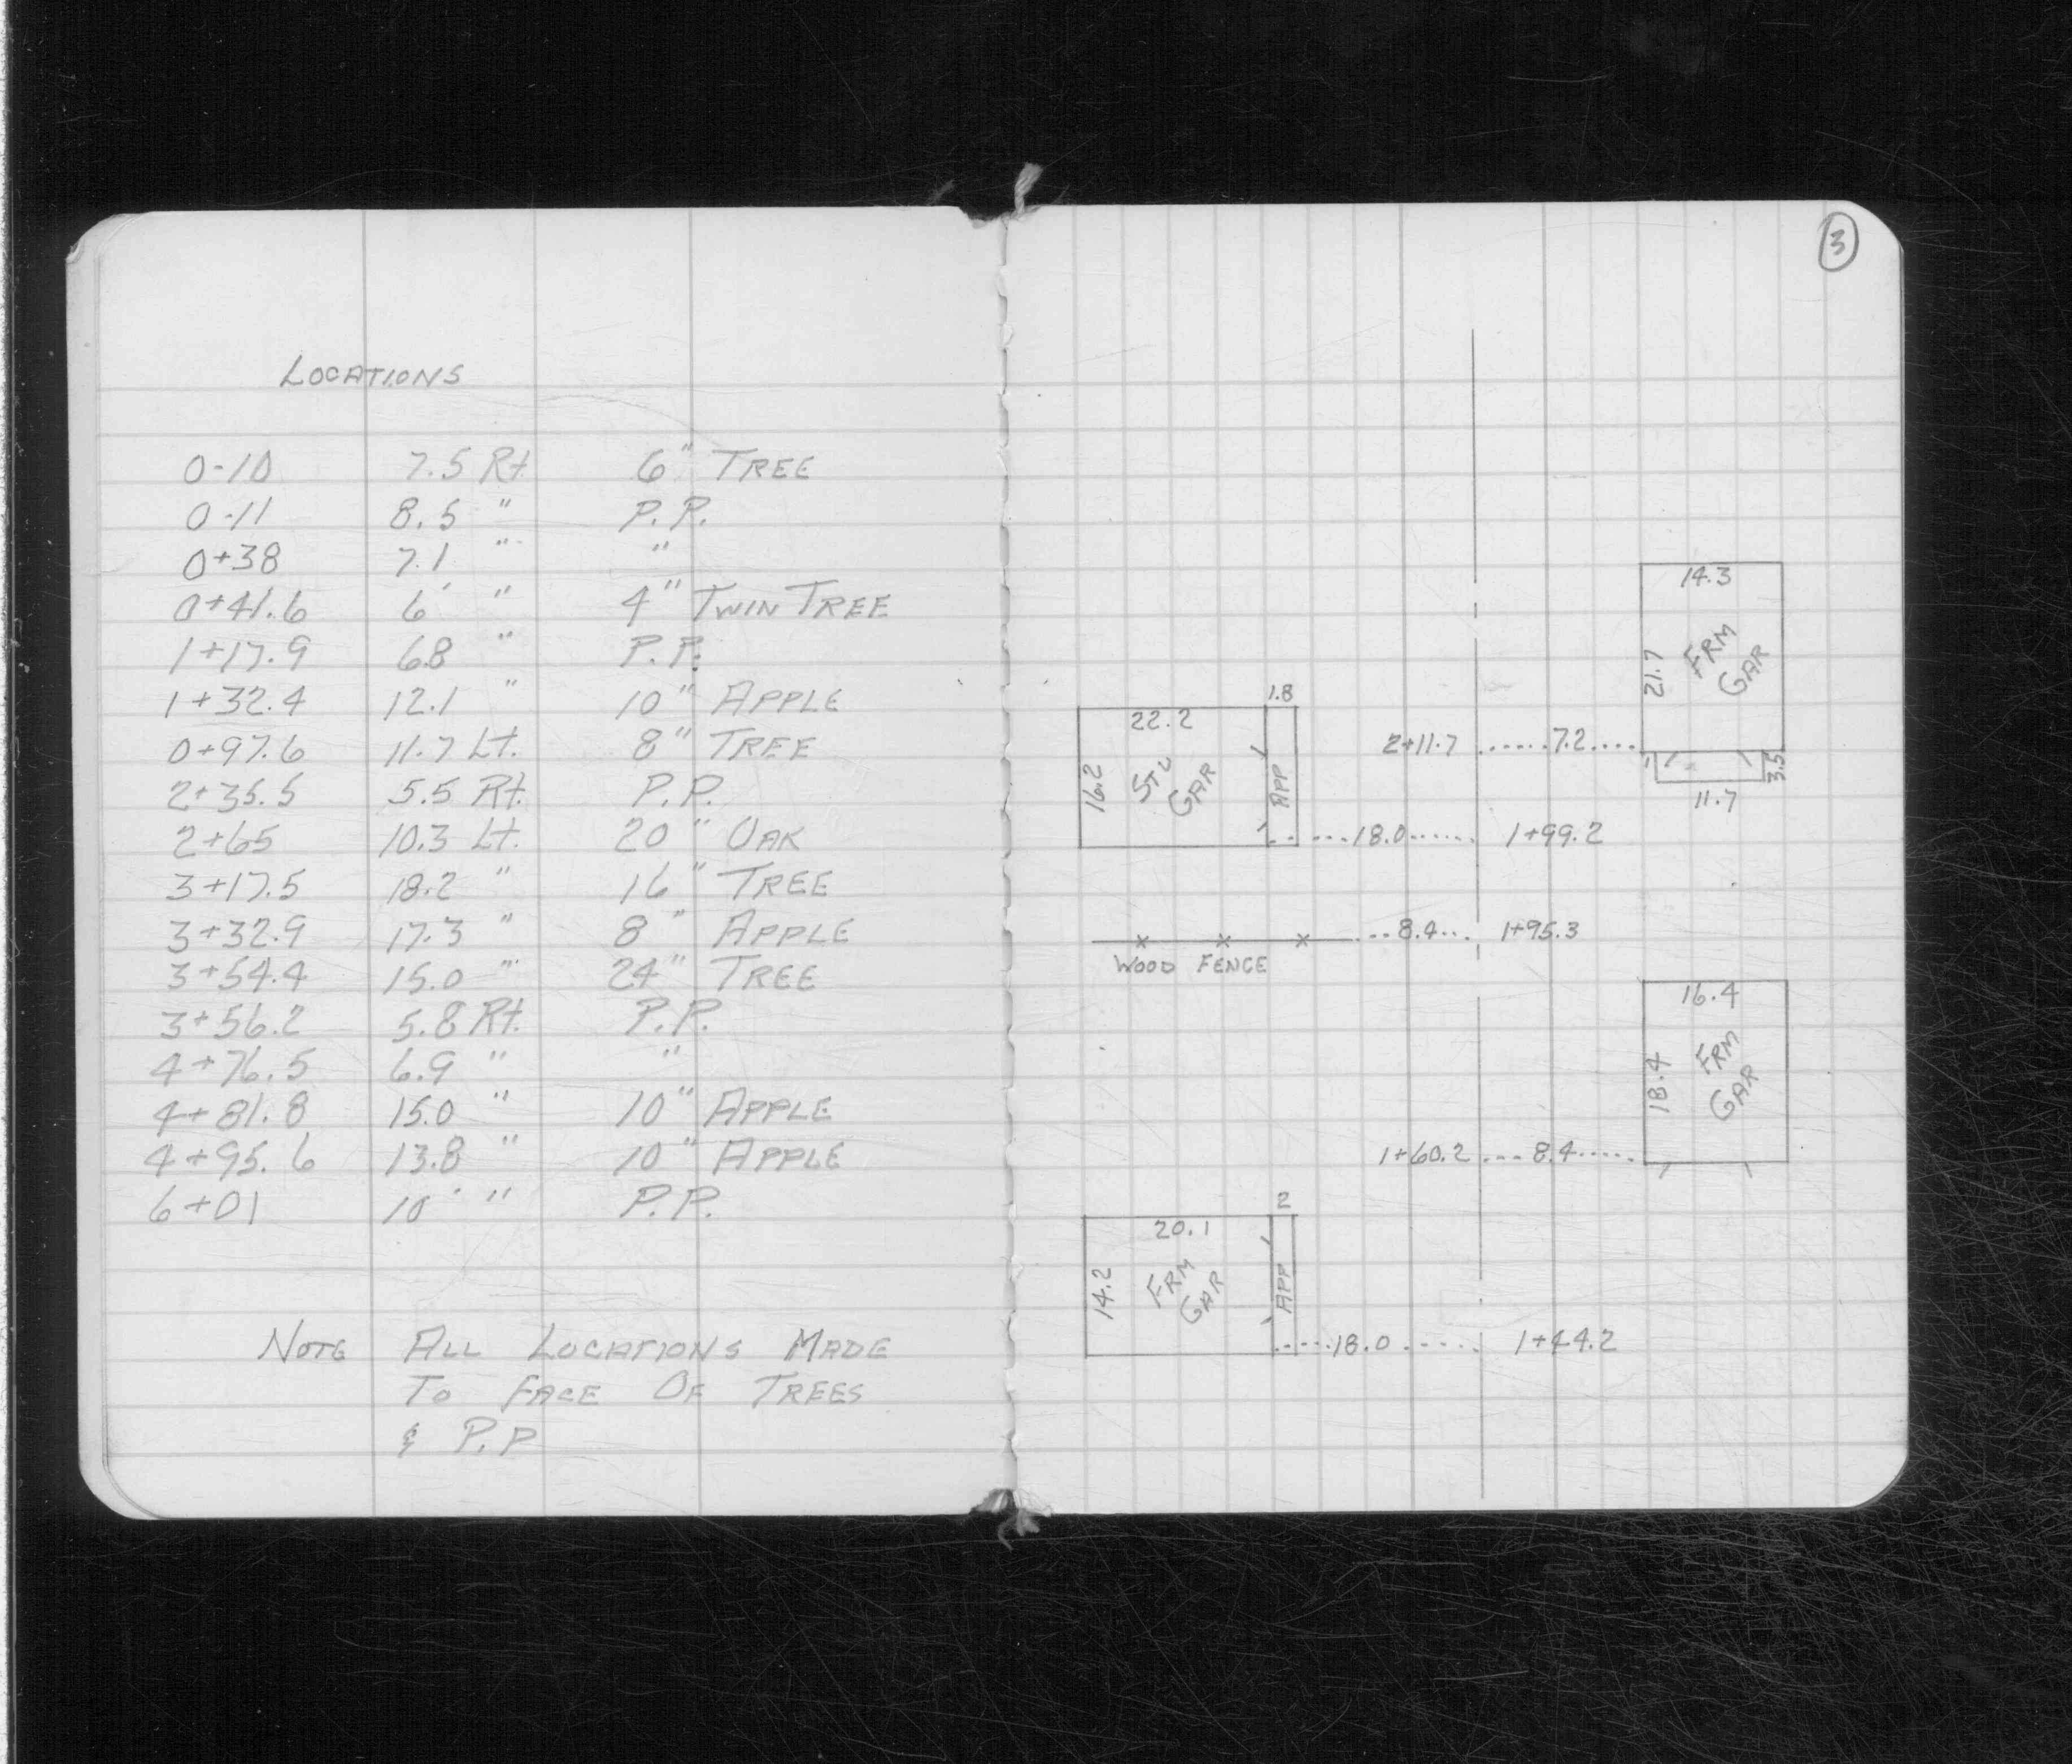 LOCATIONS
0-10 7.5 Rt. 6" TREE
0-11 8.5 " P.P.
0+38 7.1 " "
0+41.6 6' " 4" TWIN TREE
1+17.9 6.8 " P.P.
1+32.4 12.1 " 10" APPLE
0+97.6 11.7 Lt. 8" TREE
2+35.5 5.5 Rt. P.P.
2+65 10.3 Lt. 20" OAK
3+17.5 18.2 " 16" TREE
3+32.9 17.3 " 8" APPLE
3+54.4 15.0 " 24" TREE
3+56.2 5.8 Rt. P.P.
4+76.5 6.9 " "
4+81.8 15.0 " 10" APPLE
4+95.6 13.8 " 10" APPLE
6+01 10' " P.P.
NOTE ALL LOCATIONS MADE
TO FACE OF TREES
& P.P
3
14.3
21.7
FRM
GAR
1.8
22.2
16.2
STL
GAR
APP
2+11.7 7.2
3.5
11.7
18.0 1+99.2
8.4 1+95.3
WOOD FENCE
16.4
18.4
FRM
GAR
1+60.2 8.4
2
20.1
14.2
FRM
GAR
APP
18.0 1+44.2